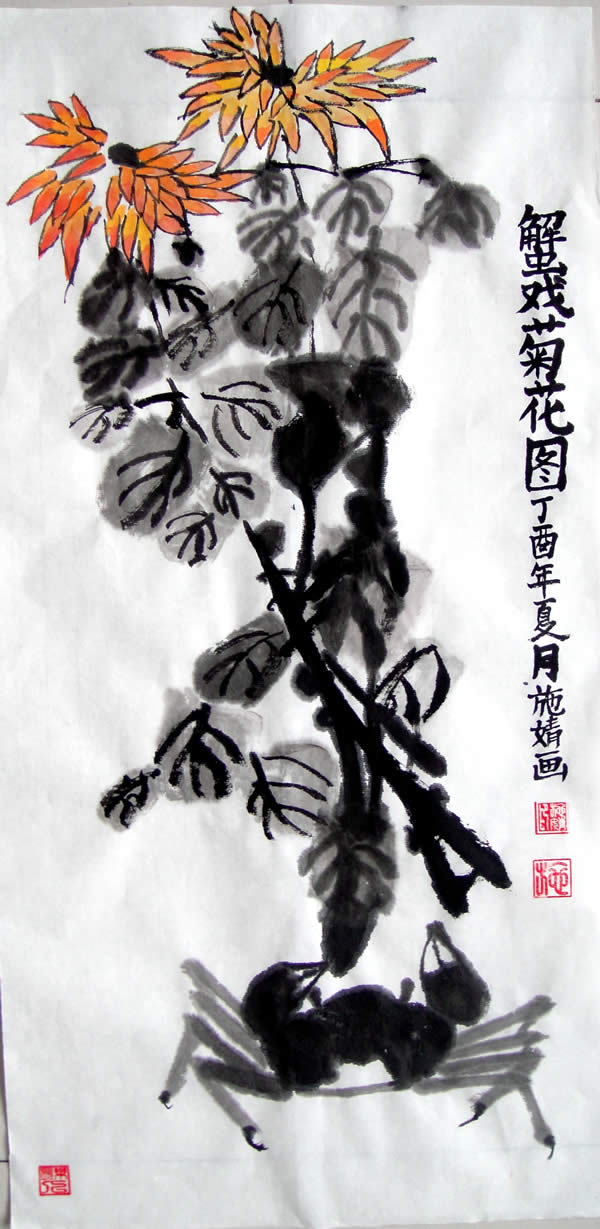 蟹戏菊花图丁酉年夏月施婧画
施